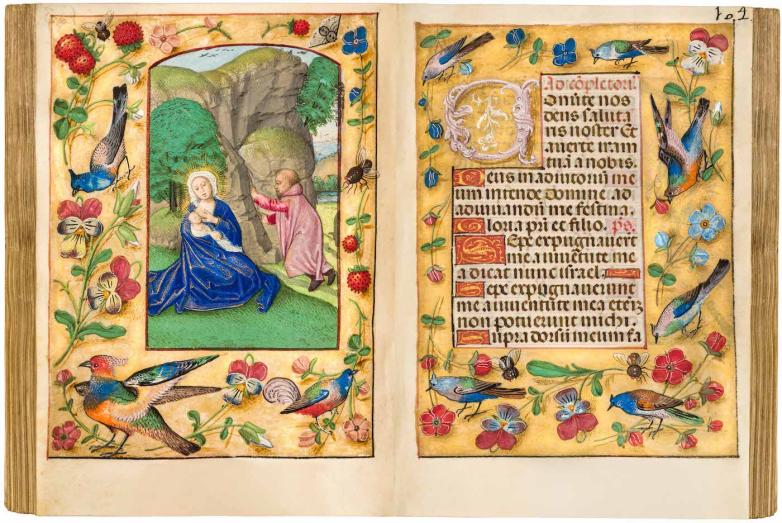 Ad cōpletoriū.
Conūte nos
deus saluta
ris noster Et
auerte iram
tuā a nobis.
Deus in adiutoriū me
um intende Domine ad
adiuuandū me festina.
Gloria pri et filio. ps.
Sepe expugnauerūt
me a iuuentute me
a dicat nunc israel
Sepe expugnauerūt
me a iuuentute mea etem̄
non potuerunt michi.
Supra dorsū meum fa